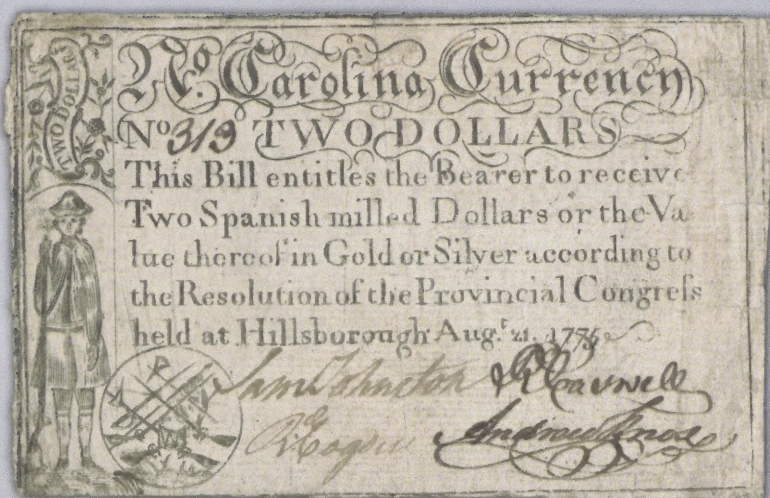 TWO DOLLARS
No. Carolina Currency
No 319 TWO DOLLARS
This Bill entitles the Bearer to receive
Two Spanish milled Dollars or the Va
lue thereof in Gold or Silver according to
the Resolution of the Provincial Congreſs
held at Hillsborough Augt. 21. 1775
Sam Johnston
Andrew Knox